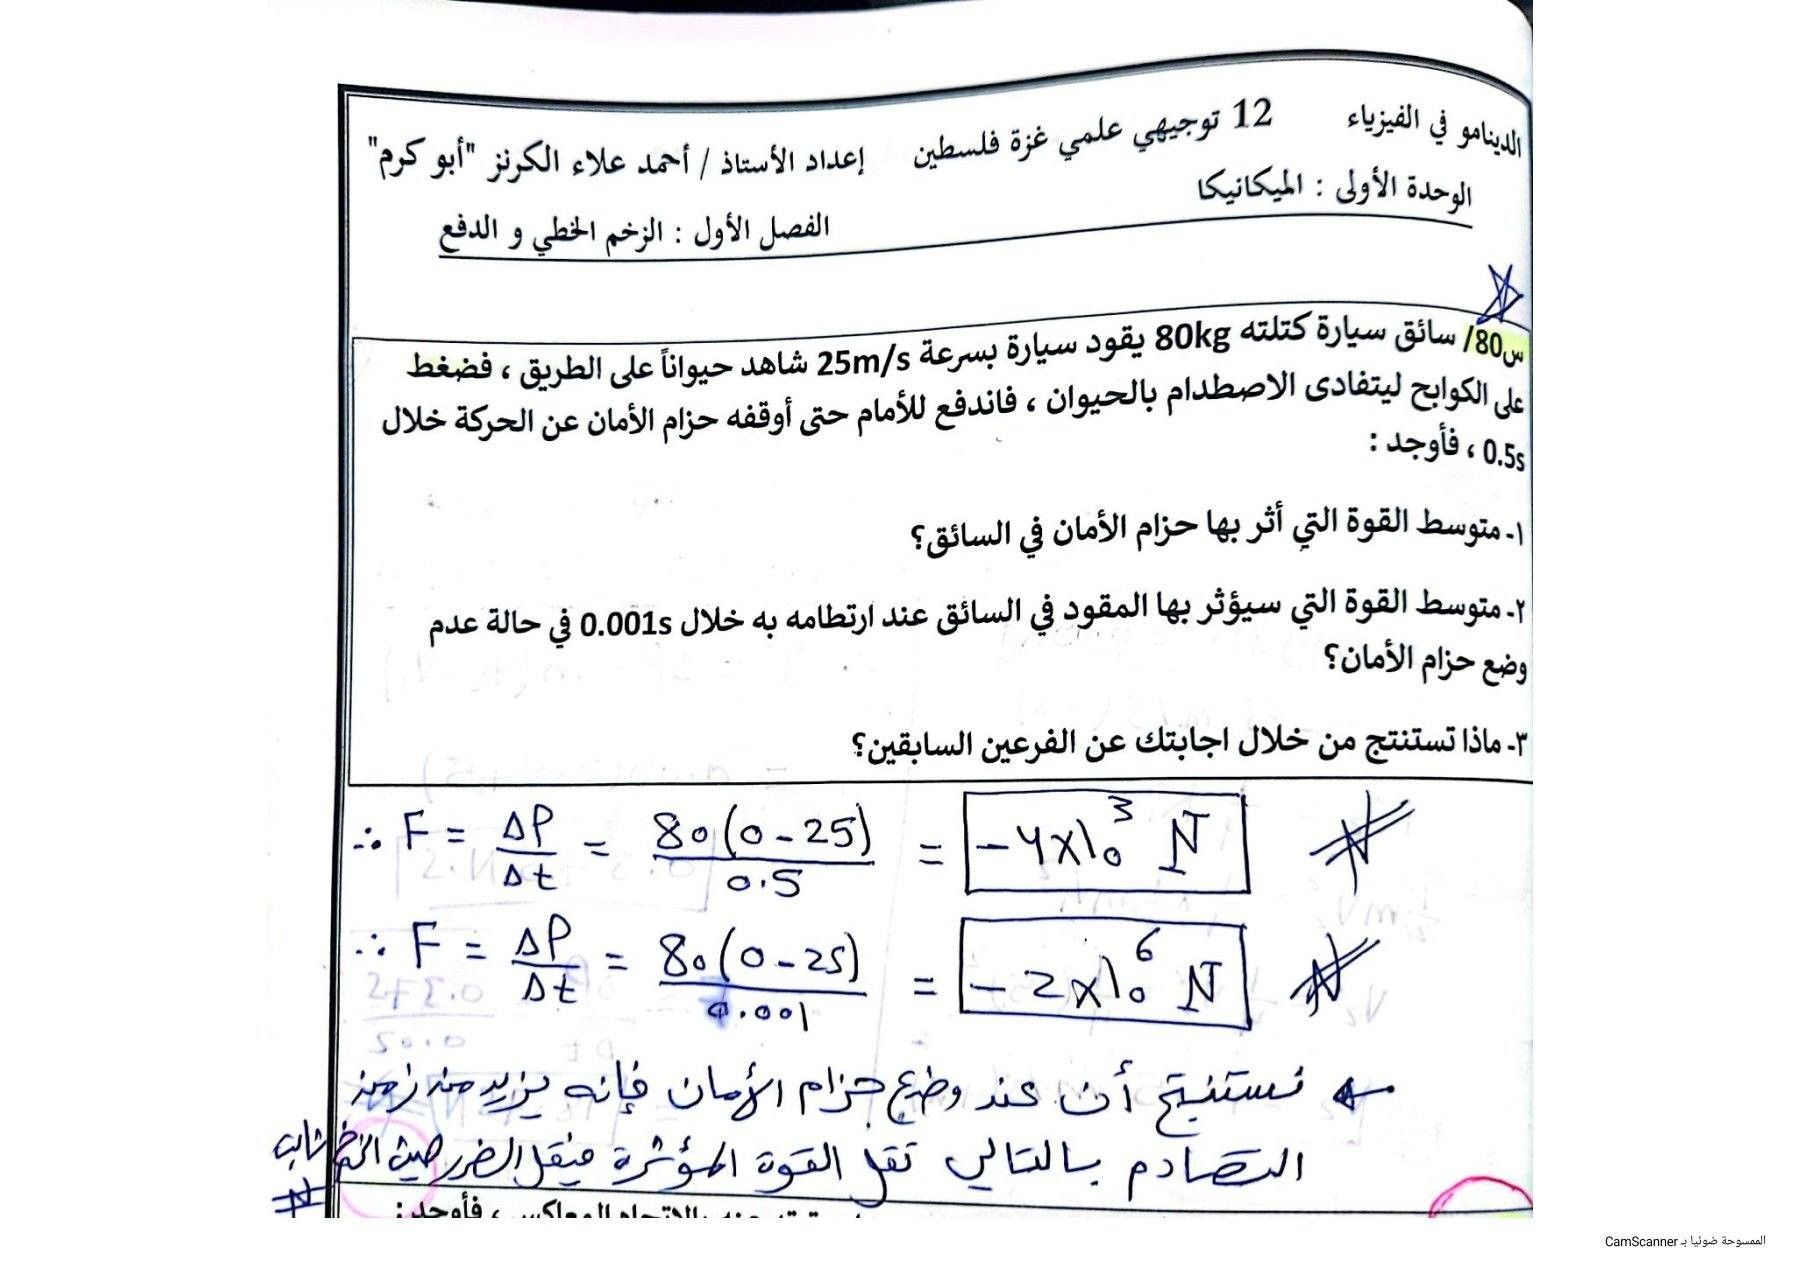 الدينامو في الفيزياء 12 توجيهي علمي غزة فلسطين إعداد الأستاذ / أحمد علاء الكرنز "أبو كرم"
الوحدة الأولى : الميكانيكا
الفصل الأول : الزخم الخطي و الدفع
س80/ سائق سيارة كتلته 80kg يقود سيارة بسرعة 25m/s شاهد حيواناً على الطريق ، فضغط
على الكوابح ليتفادى الاصطدام بالحيوان ، فاندفع للأمام حتى أوقفه حزام الأمان عن الحركة خلال
0.5s ، فأوجد :
١- متوسط القوة التي أثر بها حزام الأمان في السائق؟
٢- متوسط القوة التي سيؤثر بها المقود في السائق عند ارتطامه به خلال 0.001s في حالة عدم
وضع حزام الأمان؟
٣- ماذا تستنتج من خلال اجابتك عن الفرعين السابقين؟
∴ F = ΔP/Δt = 80(0-25)/0.5 = -4x10³ N
∴ F = ΔP/Δt = 80(0-25)/0.001 = -2x10⁶ N
← نستنتج أن عند وضع حزام الأمان فإنه يزيد من زمن
التصادم بالتالي تقل القوة المؤثرة فيقل الضرر حيث الزخم ثابت
بالاتجاه المعاكس ، فأوجد :
الممسوحة ضوئيا بـ CamScanner